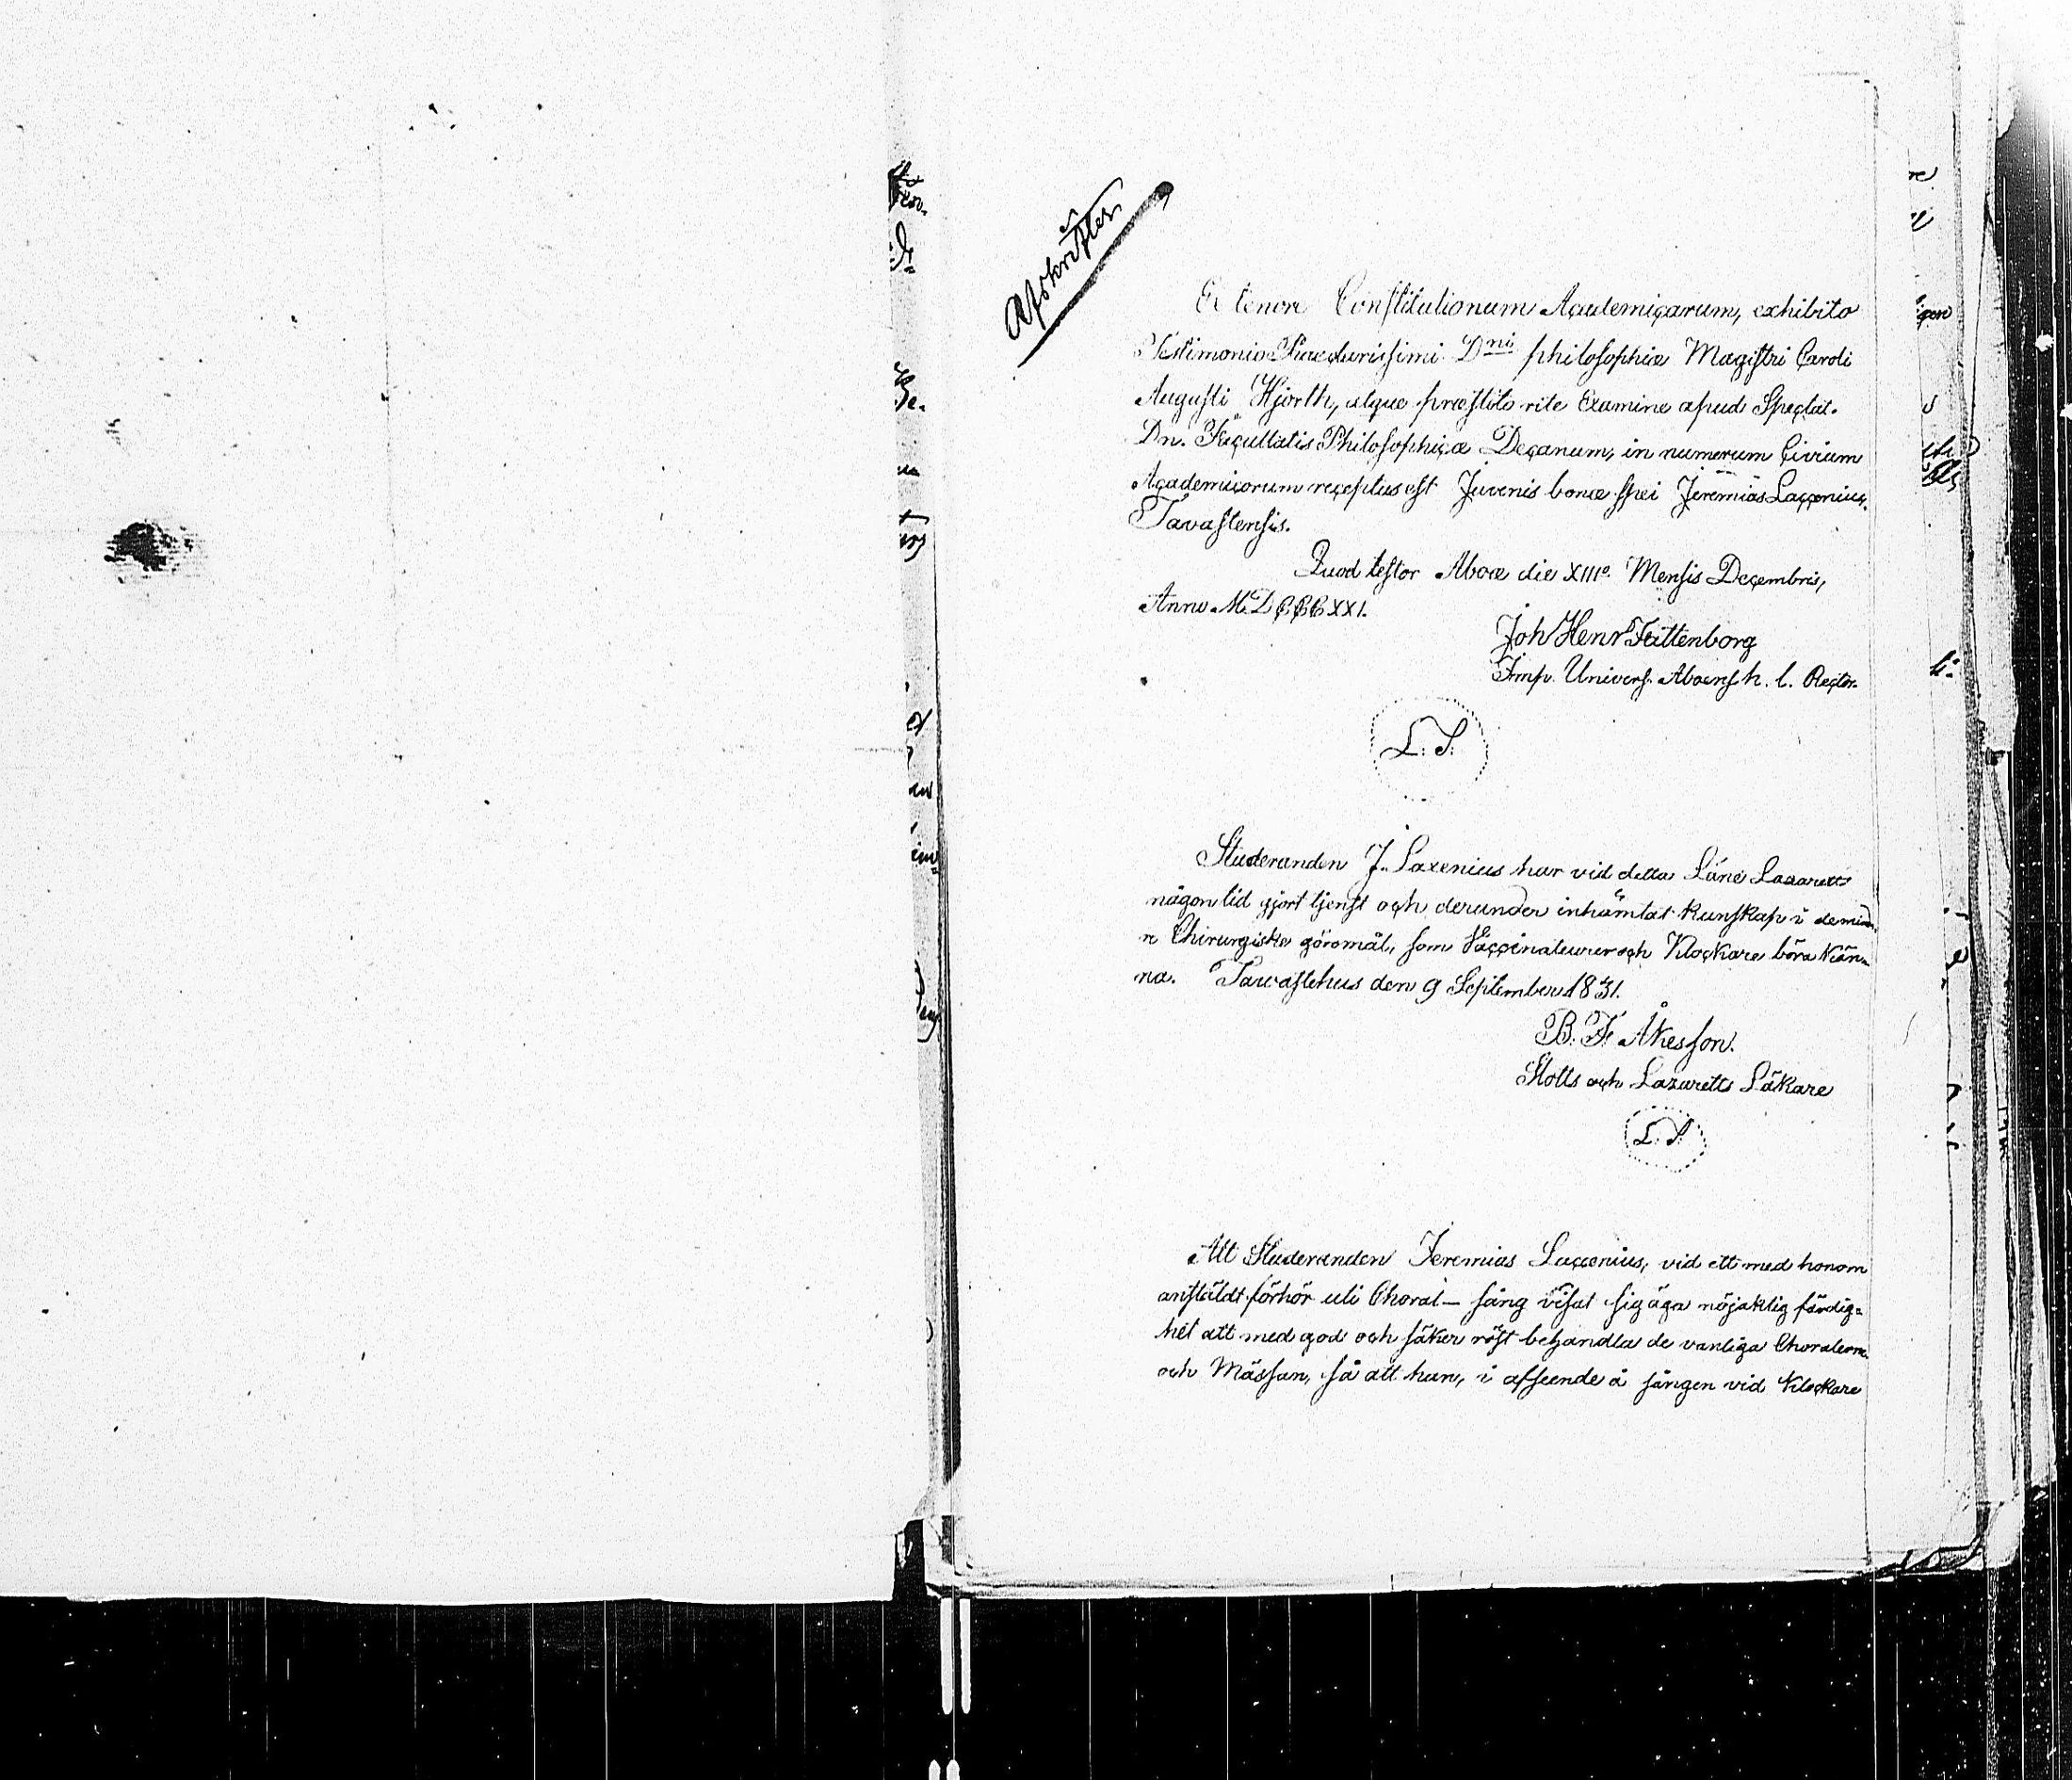 Afskrifter
Ex tenore Constitutionum Academicarum, exhibito
Testimonio Praeclarissimi Dni philosophiæ Magistri Caroli
Augusti Hjorth, atque præstito rite Examine apud Spectat.
Dn. Facultatis Philosophicæ Decanum, in numerum Civium
Academicorum receptus est Juvenis bonæ spei Jeremias Laxenius,
Tavastensis.
Quod testor Aboæ die XIIIo. Mensis Decembris,
Anno MDCCCXXI.
Joh Henr
Imp. Univers. Aboens h. t. Rector.
L. S.
Studeranden J. Laxenius har vid detta Läne Lazarett
någon tid gjort tjenst och derunder inhämtat kunskap i de mind-
re Chirurgiske göromål, som Vaccinateurer och Klockare böra kän-
na. Tawastehus den 9 September 1831.
B. F. Åkesson.
Slotts och Lazaretts Läkare
L. S.
Att Studeranden Jeremias Laxenius, vid ett med honom
anstäldt förhör uti Choral-sång visat sig äga nöjaktig färdig-
het att med god och säker röst behandla de vanliga Choralerne
och Mässan, så att han, i afseende å sången vid Klockare